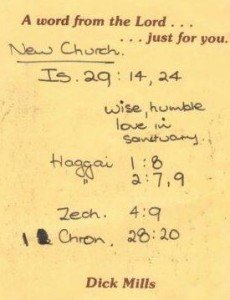 A word from the Lord . . .
. . . just for you.
New Church.
Is. 29 : 14, 24
wise, humble
love in
sanctuary.
Haggai 1 : 8
" 2 : 7, 9
Zech. 4 : 9
1 Chron. 28 : 20
Dick Mills